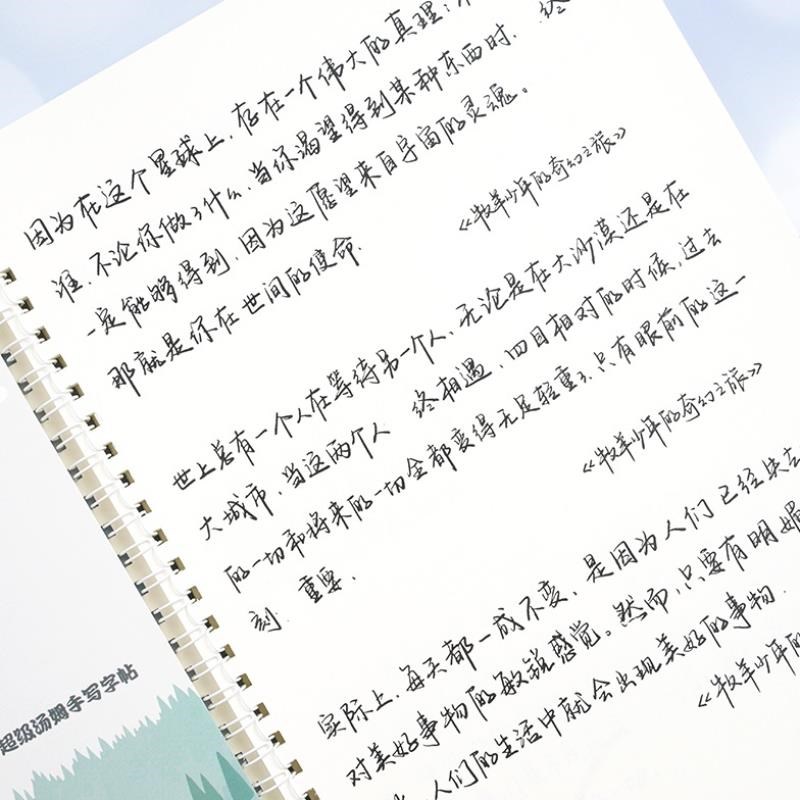 因为在这个星球上，存在一个伟大的真理：不
谁，不论你做了什么，当你渴望得到某种东西时，终
一定能够得到，因为这愿望来自宇宙的灵魂。
那就是你在世间的使命．
《牧羊少年的奇幻之旅》
世上总有一个人在等待另一个人，无论是在大沙漠还是在
大城市，当这两个人 终相遇，四目相对的时候，过去
的一切和将来的一切全都变得无足轻重了，只有眼前的这一
刻．重要．
《牧羊少年的奇幻之旅》
实际上，每天都一成不变，是因为人们已经失去
对美好事物的敏锐感觉。然而，只要有明媚
人们的生活中就会出现美好的事物．
《牧羊少年的
超级汤姆手写字帖